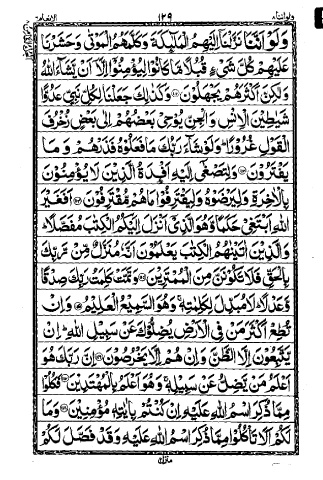 ولواننا ۱۲۹ الانعام
وَلَوْ اَنَّنَا نَزَّلْنَاۤ اِلَيْهِمُ الْمَلٰٓئِكَةَ وَكَلَّمَهُمُ الْمَوْتٰى وَحَشَرْنَا
عَلَيْهِمْ كُلَّ شَىْءٍ قُبُلًا مَّا كَانُوْا لِيُؤْمِنُوْۤا اِلَّاۤ اَنْ يَّشَآءَ اللّٰهُ
وَلٰكِنَّ اَكْثَرَهُمْ يَجْهَلُوْنَ ۝ وَكَذٰلِكَ جَعَلْنَا لِكُلِّ نَبِىٍّ عَدُوًّا
شَيٰطِيْنَ الْاِنْسِ وَالْجِنِّ يُوْحِىْ بَعْضُهُمْ اِلٰى بَعْضٍ زُخْرُفَ
الْقَوْلِ غُرُوْرًا ؕ وَلَوْ شَآءَ رَبُّكَ مَا فَعَلُوْهُ فَذَرْهُمْ وَمَا
يَفْتَرُوْنَ ۝ وَلِتَصْغٰۤى اِلَيْهِ اَفْـِٕدَةُ الَّذِيْنَ لَا يُؤْمِنُوْنَ
بِالْاٰخِرَةِ وَلِيَرْضَوْهُ وَلِيَقْتَرِفُوْا مَا هُمْ مُّقْتَرِفُوْنَ ۝ اَفَغَيْرَ
اللّٰهِ اَبْتَغِىْ حَكَمًا وَّهُوَ الَّذِىْۤ اَنْزَلَ اِلَيْكُمُ الْكِتٰبَ مُفَصَّلًا ؕ
وَالَّذِيْنَ اٰتَيْنٰهُمُ الْكِتٰبَ يَعْلَمُوْنَ اَنَّهٗ مُنَزَّلٌ مِّنْ رَّبِّكَ
بِالْحَقِّ فَلَا تَكُوْنَنَّ مِنَ الْمُمْتَرِيْنَ ۝ وَتَمَّتْ كَلِمَتُ رَبِّكَ صِدْقًا
وَّعَدْلًا ؕ لَا مُبَدِّلَ لِكَلِمٰتِهٖ ۚ وَهُوَ السَّمِيْعُ الْعَلِيْمُ ۝ وَاِنْ
تُطِعْ اَكْثَرَ مَنْ فِى الْاَرْضِ يُضِلُّوْكَ عَنْ سَبِيْلِ اللّٰهِ ؕ اِنْ
يَّتَّبِعُوْنَ اِلَّا الظَّنَّ وَاِنْ هُمْ اِلَّا يَخْرُصُوْنَ ۝ اِنَّ رَبَّكَ هُوَ
اَعْلَمُ مَنْ يَّضِلُّ عَنْ سَبِيْلِهٖ ۚ وَهُوَ اَعْلَمُ بِالْمُهْتَدِيْنَ ۝ فَكُلُوْا
مِمَّا ذُكِرَ اسْمُ اللّٰهِ عَلَيْهِ اِنْ كُنْتُمْ بِاٰيٰتِهٖ مُؤْمِنِيْنَ ۝ وَمَا
لَكُمْ اَلَّا تَاْكُلُوْا مِمَّا ذُكِرَ اسْمُ اللّٰهِ عَلَيْهِ وَقَدْ فَصَّلَ لَكُمْ